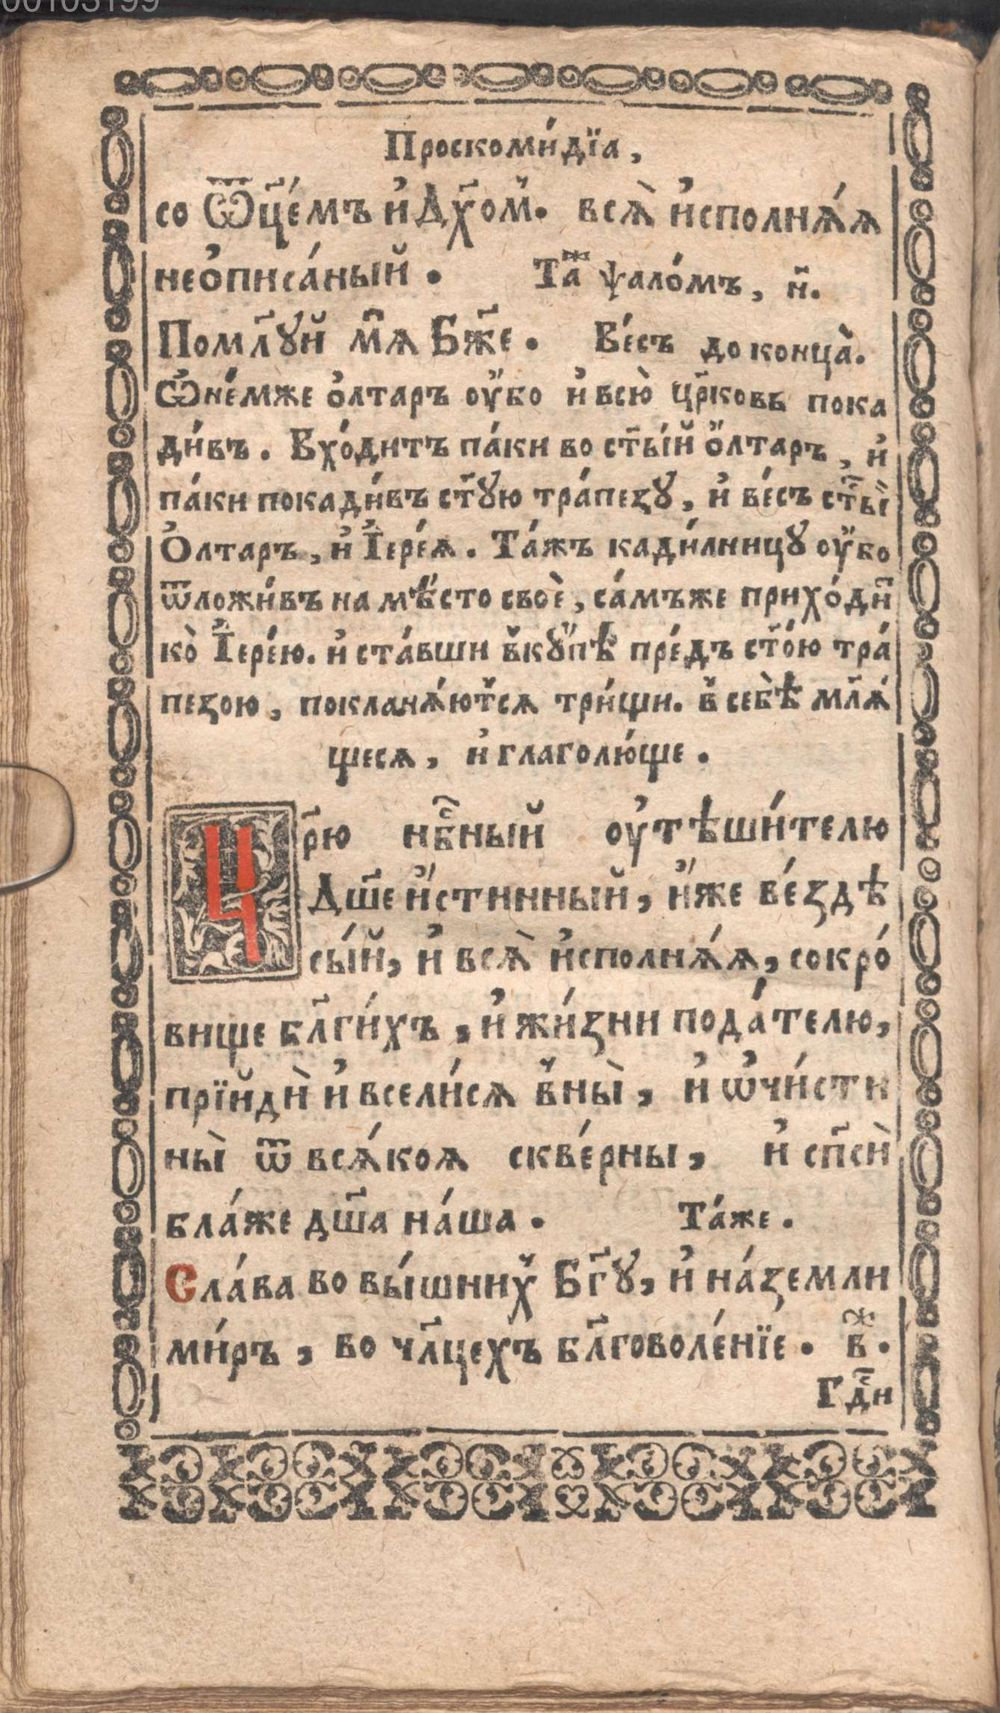 00103199
Проскоми́дїа,
со Ѿц҃е́мъ и҆ Дх҃ом̾. всѧ̀ и҆сполнѧ́ѧ
неѻписа́ный. Та́ⷤ ѱало́мъ, н҃.
Помл҃ꙋй мѧ̀ Бж҃е. Ве́сь до конца̀.
Ѡ҆ не́мже ѻ҆лтаръ оу҆́бо и҆ всю̀ цр҃ковь пока
ди́въ. Вхо́дитъ па́ки во ст҃ы́й ѻ҆лтаръ, и҆
па́ки покади́въ ст҃ꙋю тра́пезꙋ, и҆ ве́сь ст҃ы̀
Ѻ҆лтаръ, и҆ І҆ере́ѧ. Та́жъ кади́лницꙋ оу҆́бо
ѿложи́въ на мѣ́сто своѐ, са́мъже прихо́диⷮ
ко̀ І҆ере́ю. и҆ ста́вши вкꙋ́пѣ пре́дъ ст҃о́ю тра́
пезою, покланѧ́ютсѧ три́щи. в̾ себѣ̀ млѧ҃́
щесѧ, и҆ глаголю́ще.
Цр҃ю нб҃ный оу҆тѣши́телю
Дш҃е и҆́стинный, и҆́же ве́здѣ
сы́й, и҆ всѧ̀ и҆сполнѧ́ѧ, сокро́
вище бл҃ги́хъ, и҆ жи́зни пода́телю,
прїйдѝ и҆ всели́сѧ в̾ны̀, и҆ ѡ҆чи́сти
ны̀ ѿ всѧ́коѧ скве́рны, и҆ сп҃сѝ
бла́же дш҃а на́ша. Та́же.
Сла́ва во вы́шних̾ Бг҃ꙋ, и҆ на́земли
ми́ръ, во чл҃цехъ бл҃говоле́нїе. вⷤ.
Гдⷭ҇и